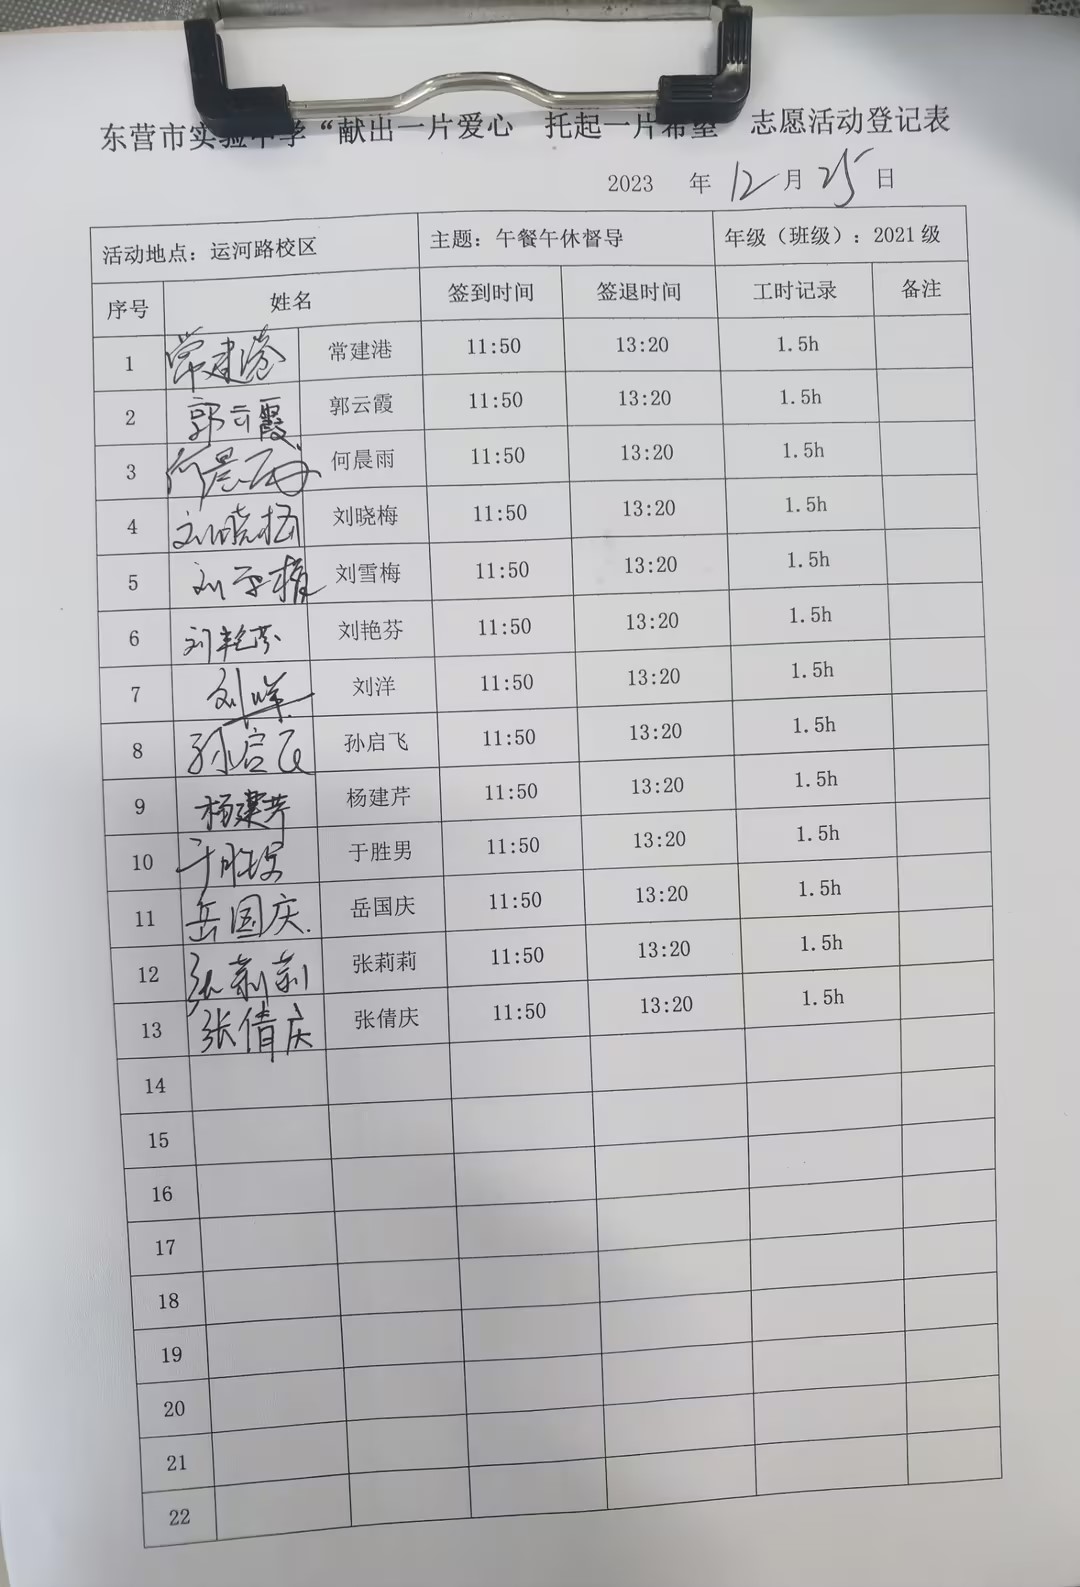 东营市实验中学“献出一片爱心 托起一片希望”志愿活动登记表
2023 年 12 月 25 日
活动地点：运河路校区 主题：午餐午休督导 年级（班级）：2021级
序号 姓名 签到时间 签退时间 工时记录 备注
1 常建港 常建港 11:50 13:20 1.5h
2 郭云霞 郭云霞 11:50 13:20 1.5h
3 何晨雨 何晨雨 11:50 13:20 1.5h
4 刘晓梅 刘晓梅 11:50 13:20 1.5h
5 刘雪梅 刘雪梅 11:50 13:20 1.5h
6 刘艳芬 刘艳芬 11:50 13:20 1.5h
7 刘洋 刘洋 11:50 13:20 1.5h
8 孙启飞 孙启飞 11:50 13:20 1.5h
9 杨建芹 杨建芹 11:50 13:20 1.5h
10 于胜男 于胜男 11:50 13:20 1.5h
11 岳国庆. 岳国庆 11:50 13:20 1.5h
12 张莉莉 张莉莉 11:50 13:20 1.5h
13 张倩庆 张倩庆 11:50 13:20 1.5h
14
15
16
17
18
19
20
21
22